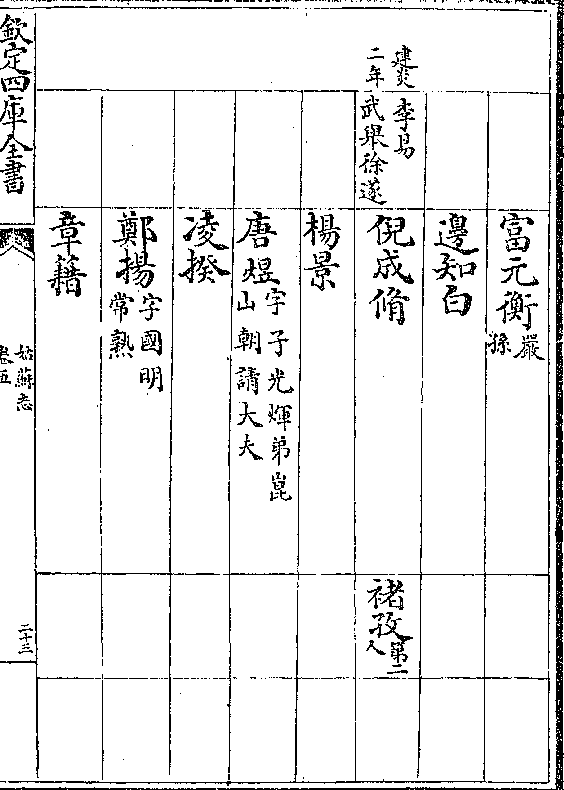 富元衡嚴
孫
邊知白
建炎李易
二年武舉徐遂
倪成脩
褚孜第二
人
楊景
唐煜字子光煇弟崑
山朝請大夫
凌揆
鄭揚字國明
常熟
章籍
欽定四庫全書
姑蘇志
卷五
二十三